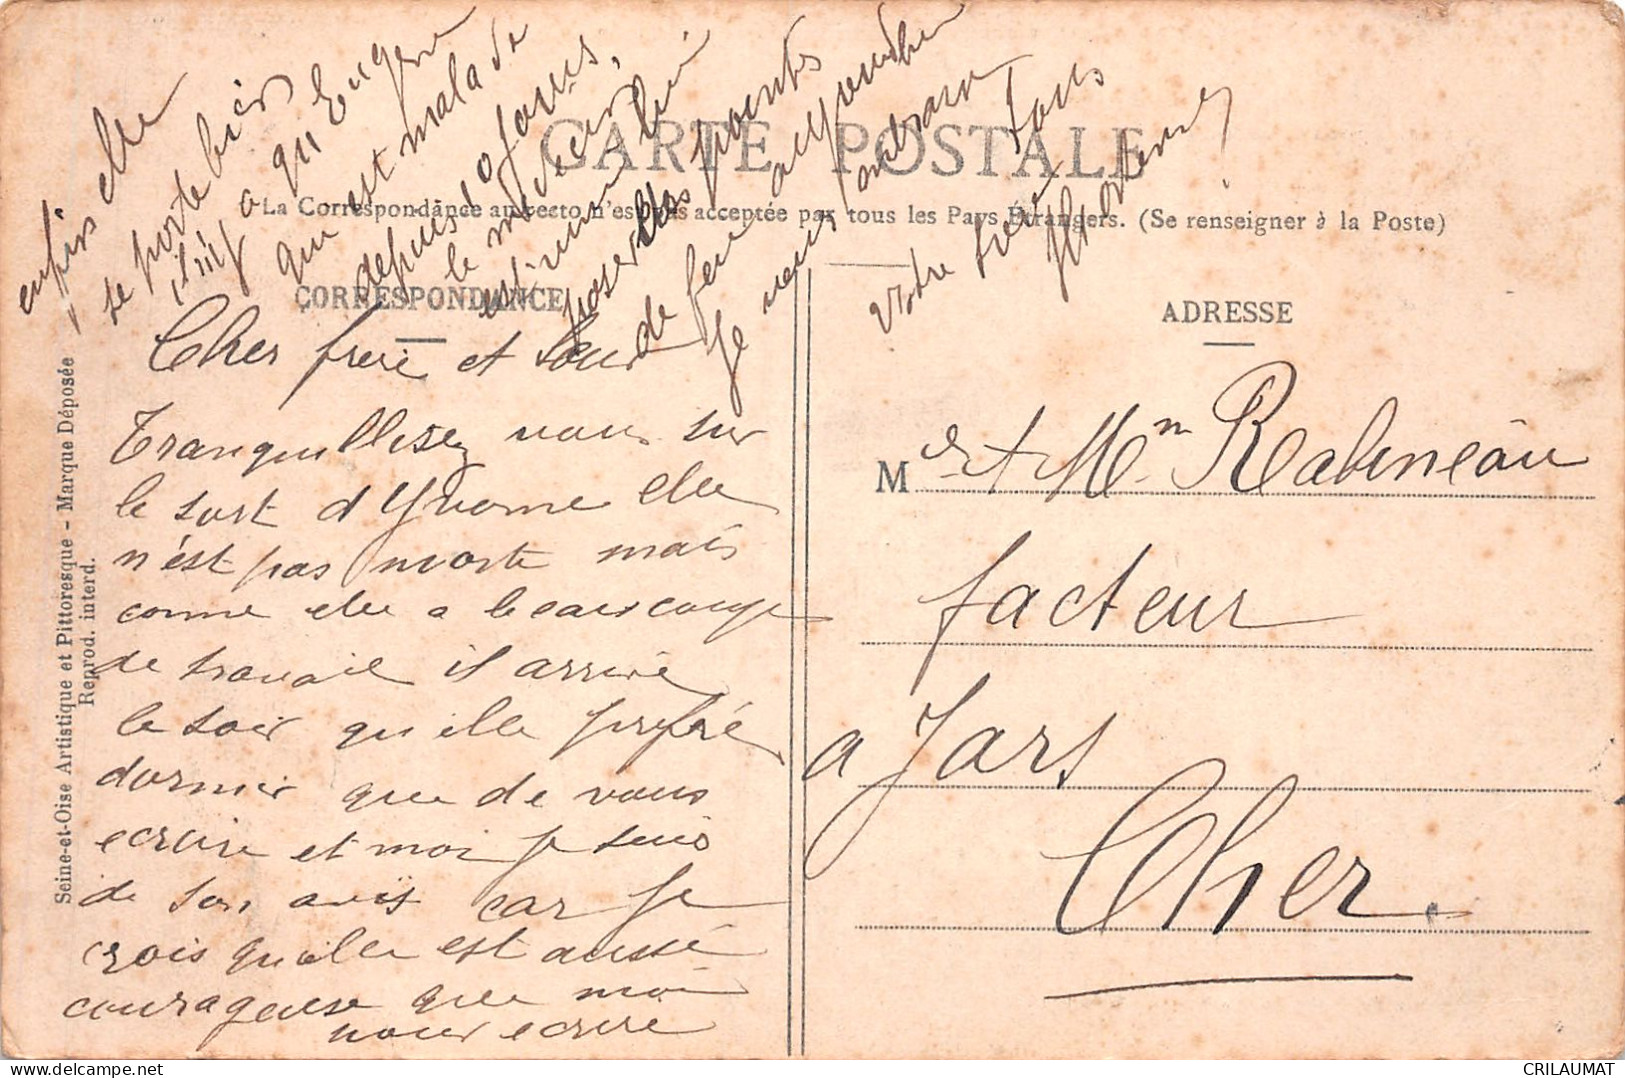 CARTE POSTALE
La Correspondance au recto n'est pas acceptée par tous les Pays Étrangers. (Se renseigner à la Poste)
CORRESPONDANCE
Cher frere et Seur
Tranquillisez vous sur
le sort d Yvonne elle
n'est pas morte mais
comme elle a beaucoup
de travail il arrive
le soir qu elle prefére
dormir que de vous
ecrire et moi je suis
de son avis car je
crois qu elle est aussi
courageuse que moi
pour ecrire
enfin elle
se porte bien
il n'y a qu Eugene
qui est malade
depuis 10 jours,
le medecin
est venu lui
poser les pointes
de feu
Je vous
Tous
Votre frère
ADRESSE
M er et Mm Rabineau
facteur
a Jars
Cher.
Seine-et-Oise Artistique et Pittoresque - Marque Déposée
Reprod. interd.
CRILAUMAT